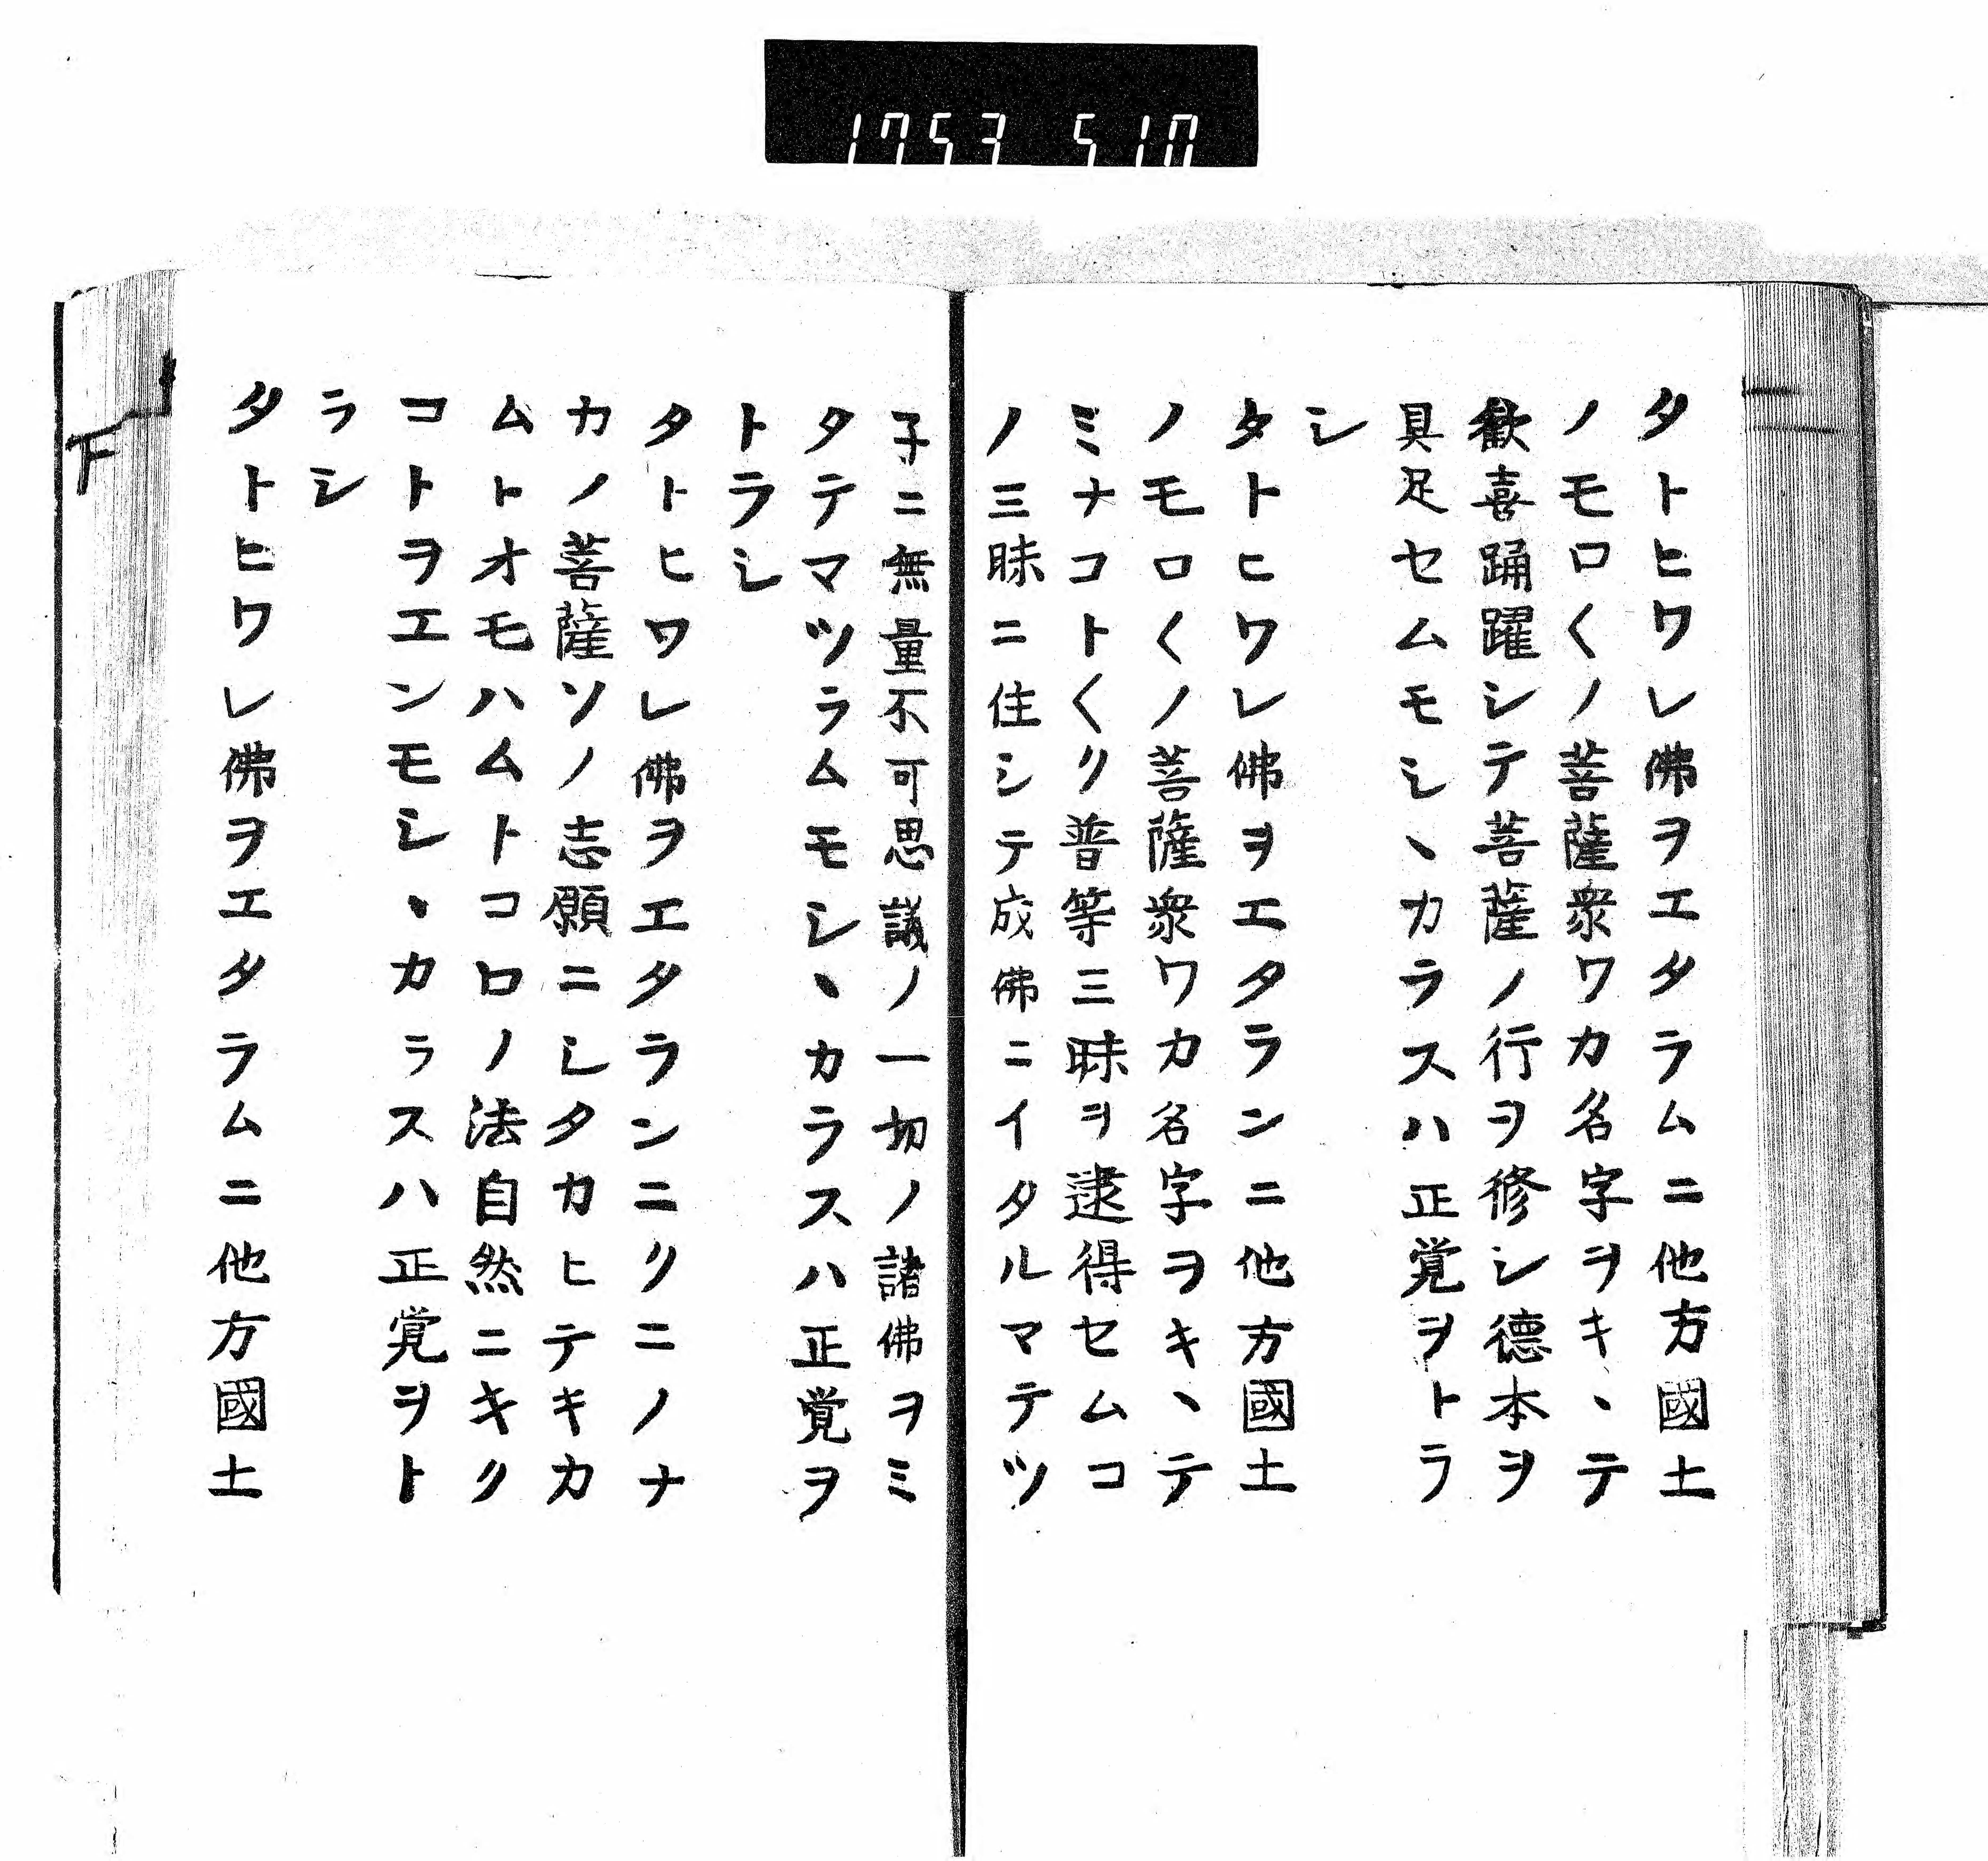 1753 510
タトヒワレ佛ヲエタラムニ他方國土
ノモロ〱ノ菩薩衆ワカ名字ヲキヽテ
歡喜踊躍シテ菩薩ノ行ヲ修シ德本ヲ
具足セムモシヽカラスハ正覚ヲトラ
シ
タトヒワレ佛ヲエタランニ他方國土
ノモロ〱ノ菩薩衆ワカ名字ヲキヽテ
ミナコト〱リ普等三昧ヲ逮得セムコ
ノ三昧ニ住シテ成佛ニイタルマテツ
子ニ無量不可思議ノ一切ノ諸佛ヲミ
タテマツラムモシヽカラスハ正覚ヲ
トラシ
タトヒワレ佛ヲエタランニリニノナ
カノ菩薩ソノ志願ニシタカヒテキカ
ムトオモハムトコロノ法自然ニキリ
コトヲエンモシヽカラスハ正覚ヲト
ラシ
タトヒワレ佛ヲエタラムニ他方國土
下